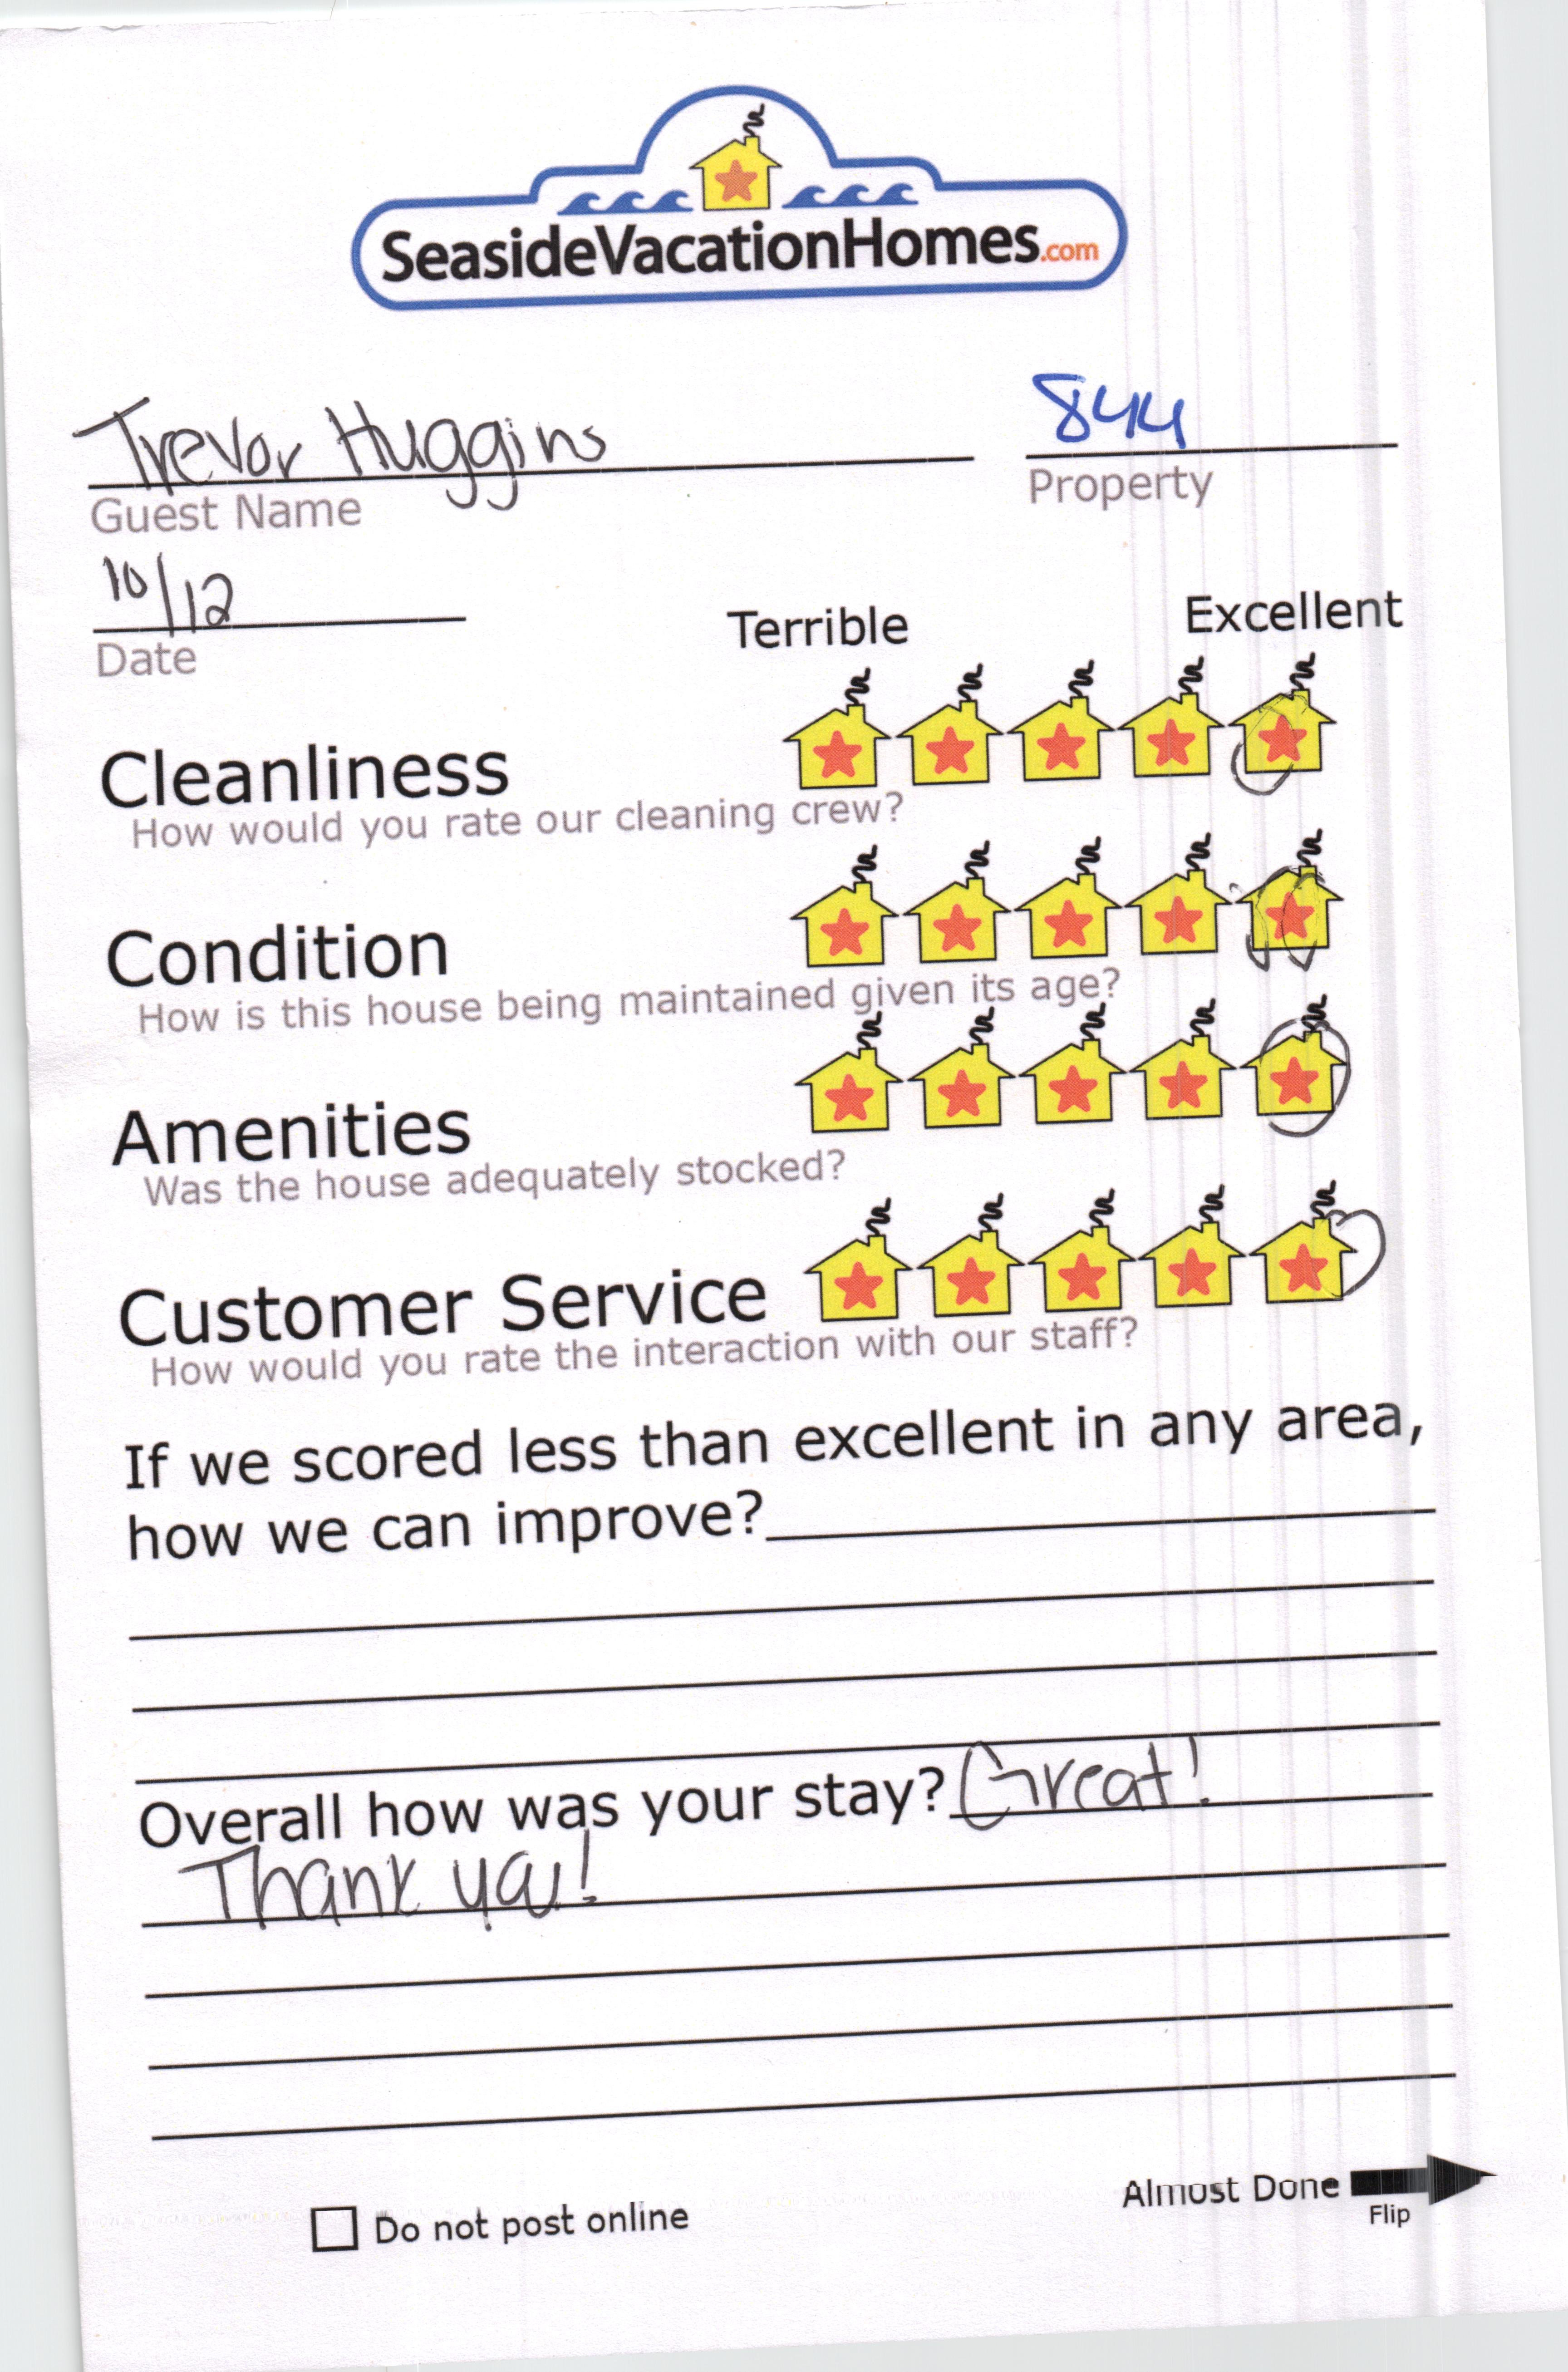 SeasideVacationHomes.com
Trevor Huggins
844
Guest Name
Property
10/12
Date
Terrible
Excellent
Cleanliness
How would you rate our cleaning crew?
Condition
How is this house being maintained given its age?
Amenities
Was the house adequately stocked?
Customer Service
How would you rate the interaction with our staff?
If we scored less than excellent in any area,
how we can improve?
Overall how was your stay? Great!
Thank you!
Do not post online
Almost Done
Flip